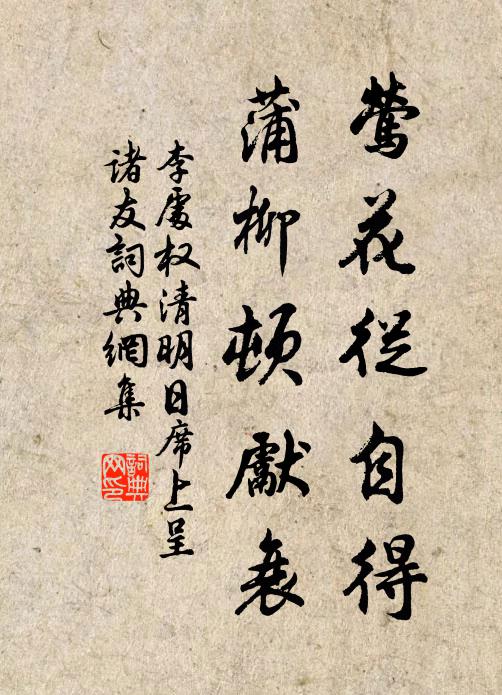 鶯花從自得
蒲柳頓獻衰
李處权清明日席上呈
諸友詞典網集
詞典
网印